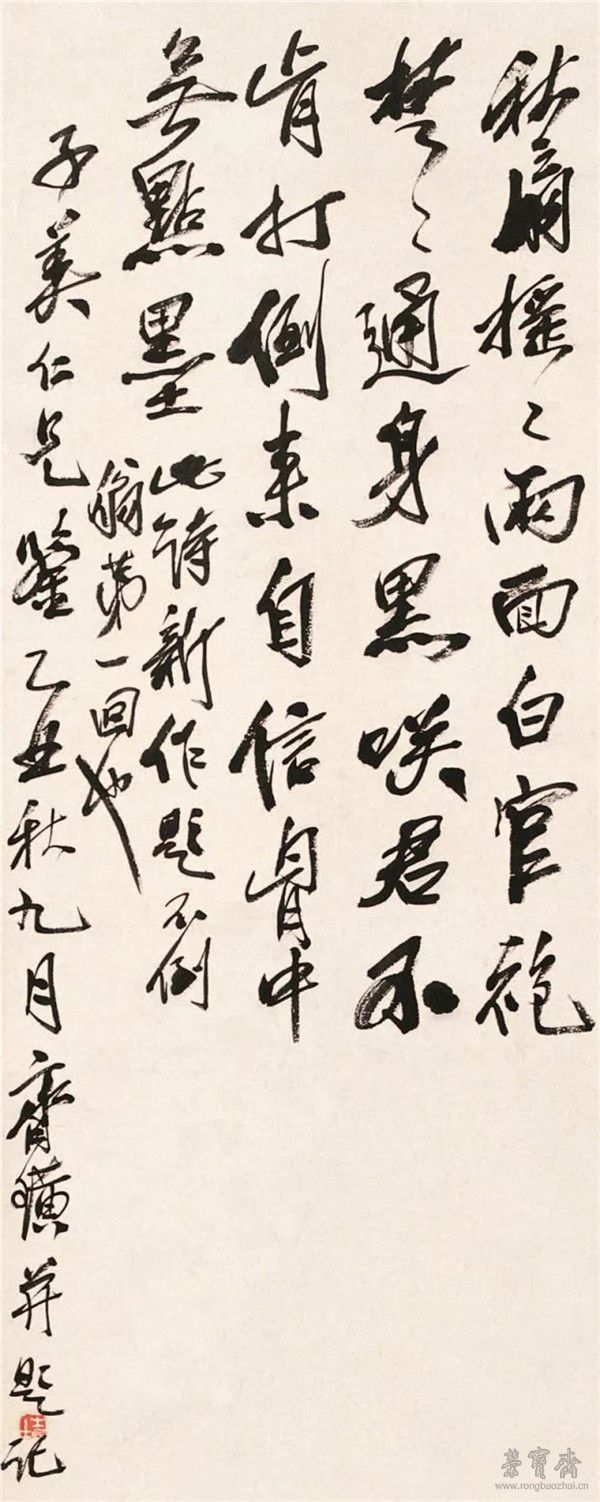 秋扇摇〻两面白官袍
楚〻通身黑笑君不
肯打倒来自信胷中
无點墨
此诗新作题不倒
翁第一回也
子美仁兄鉴乙丑秋九月齊璜并题记
榮寳齋
www.rongbaozhai.cn